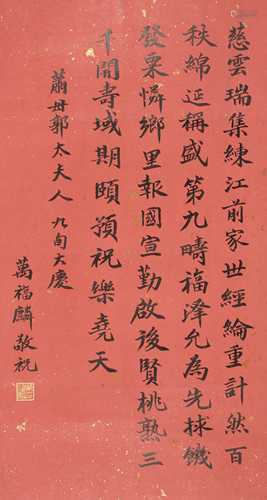 慈雲瑞集練江前家世經綸重計然百
秩綿延稱盛第九疇福澤允為先捄饑
發粟憐鄉里報國宣勤啟後賢桃熟三
千開壽域期頤預祝樂堯天
蕭母郭太夫人九旬大慶
萬福麟敬祝